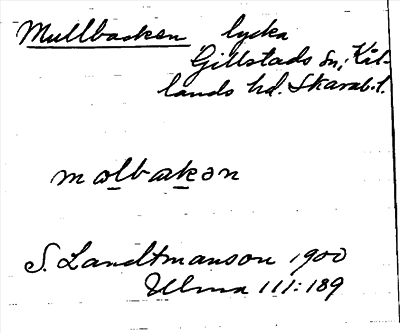 Mullbacken lycka
Gillstads sn, Kål-
lands hd. Skarab. l.
malbakən
S. Landtmanson 1900
Ulma 111:189